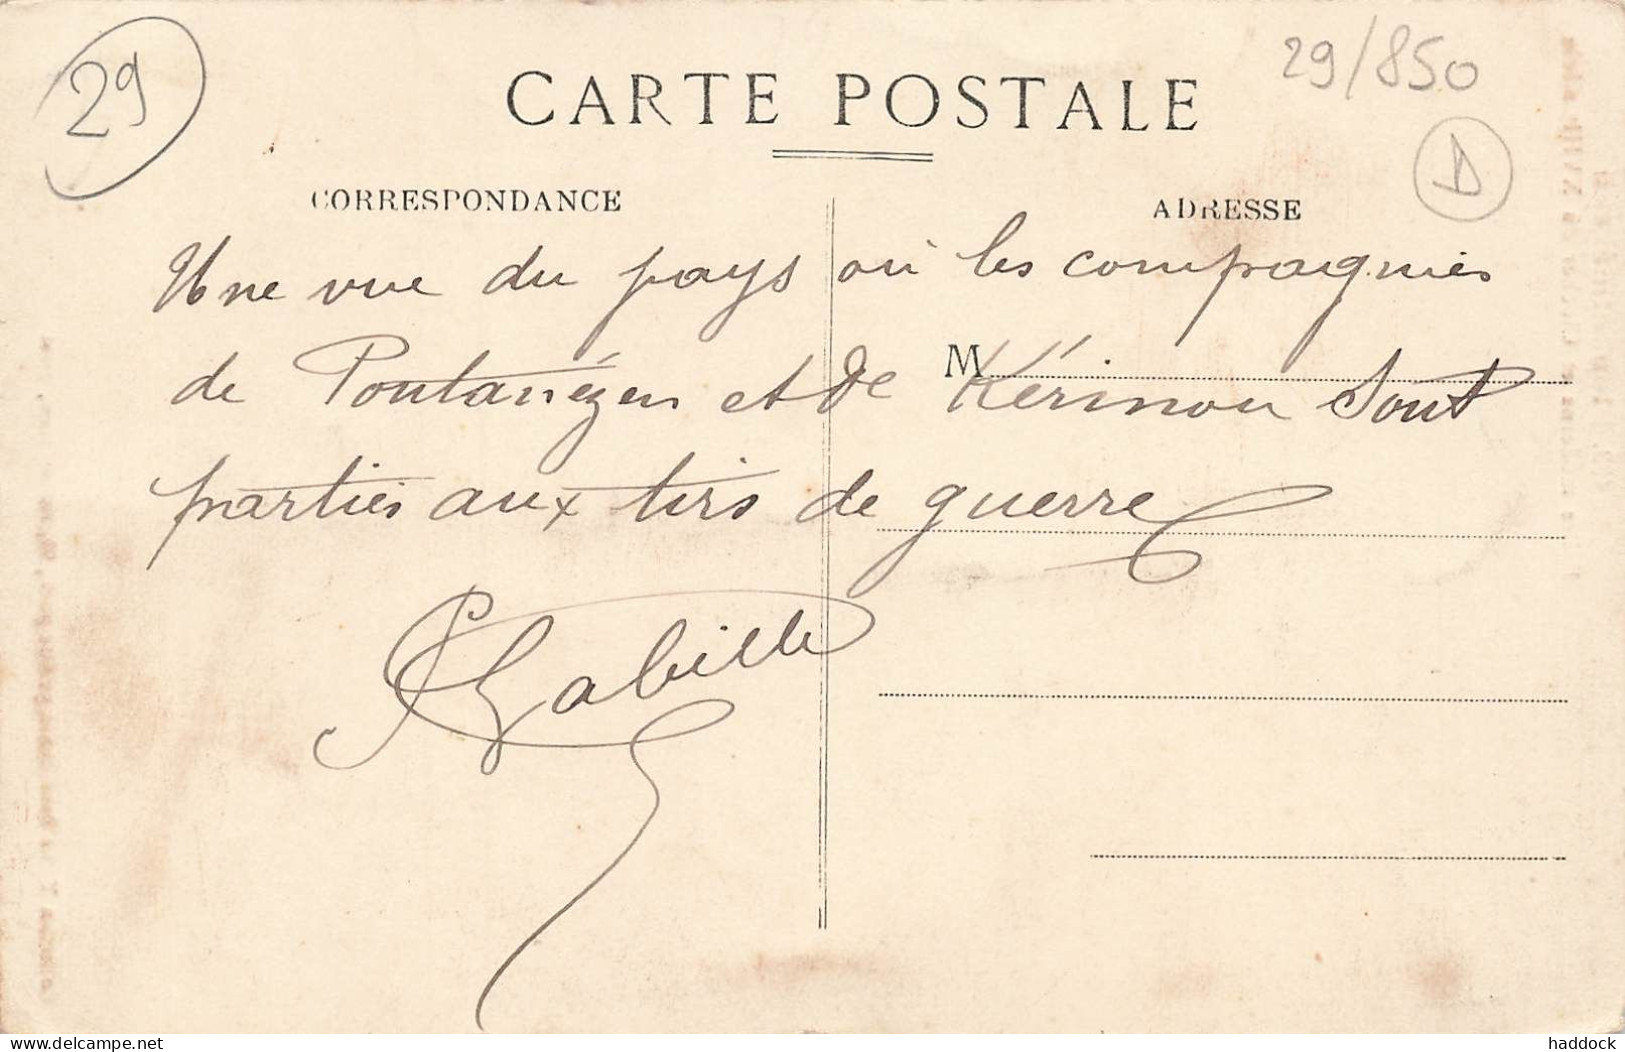 29
CARTE POSTALE
29/850
D
CORRESPONDANCE
ADRESSE
Une vue du pays où les compagnies
M
de Pontanézen et de Kérinou sont
parties aux tirs de guerre
www.delcampe.net
haddock